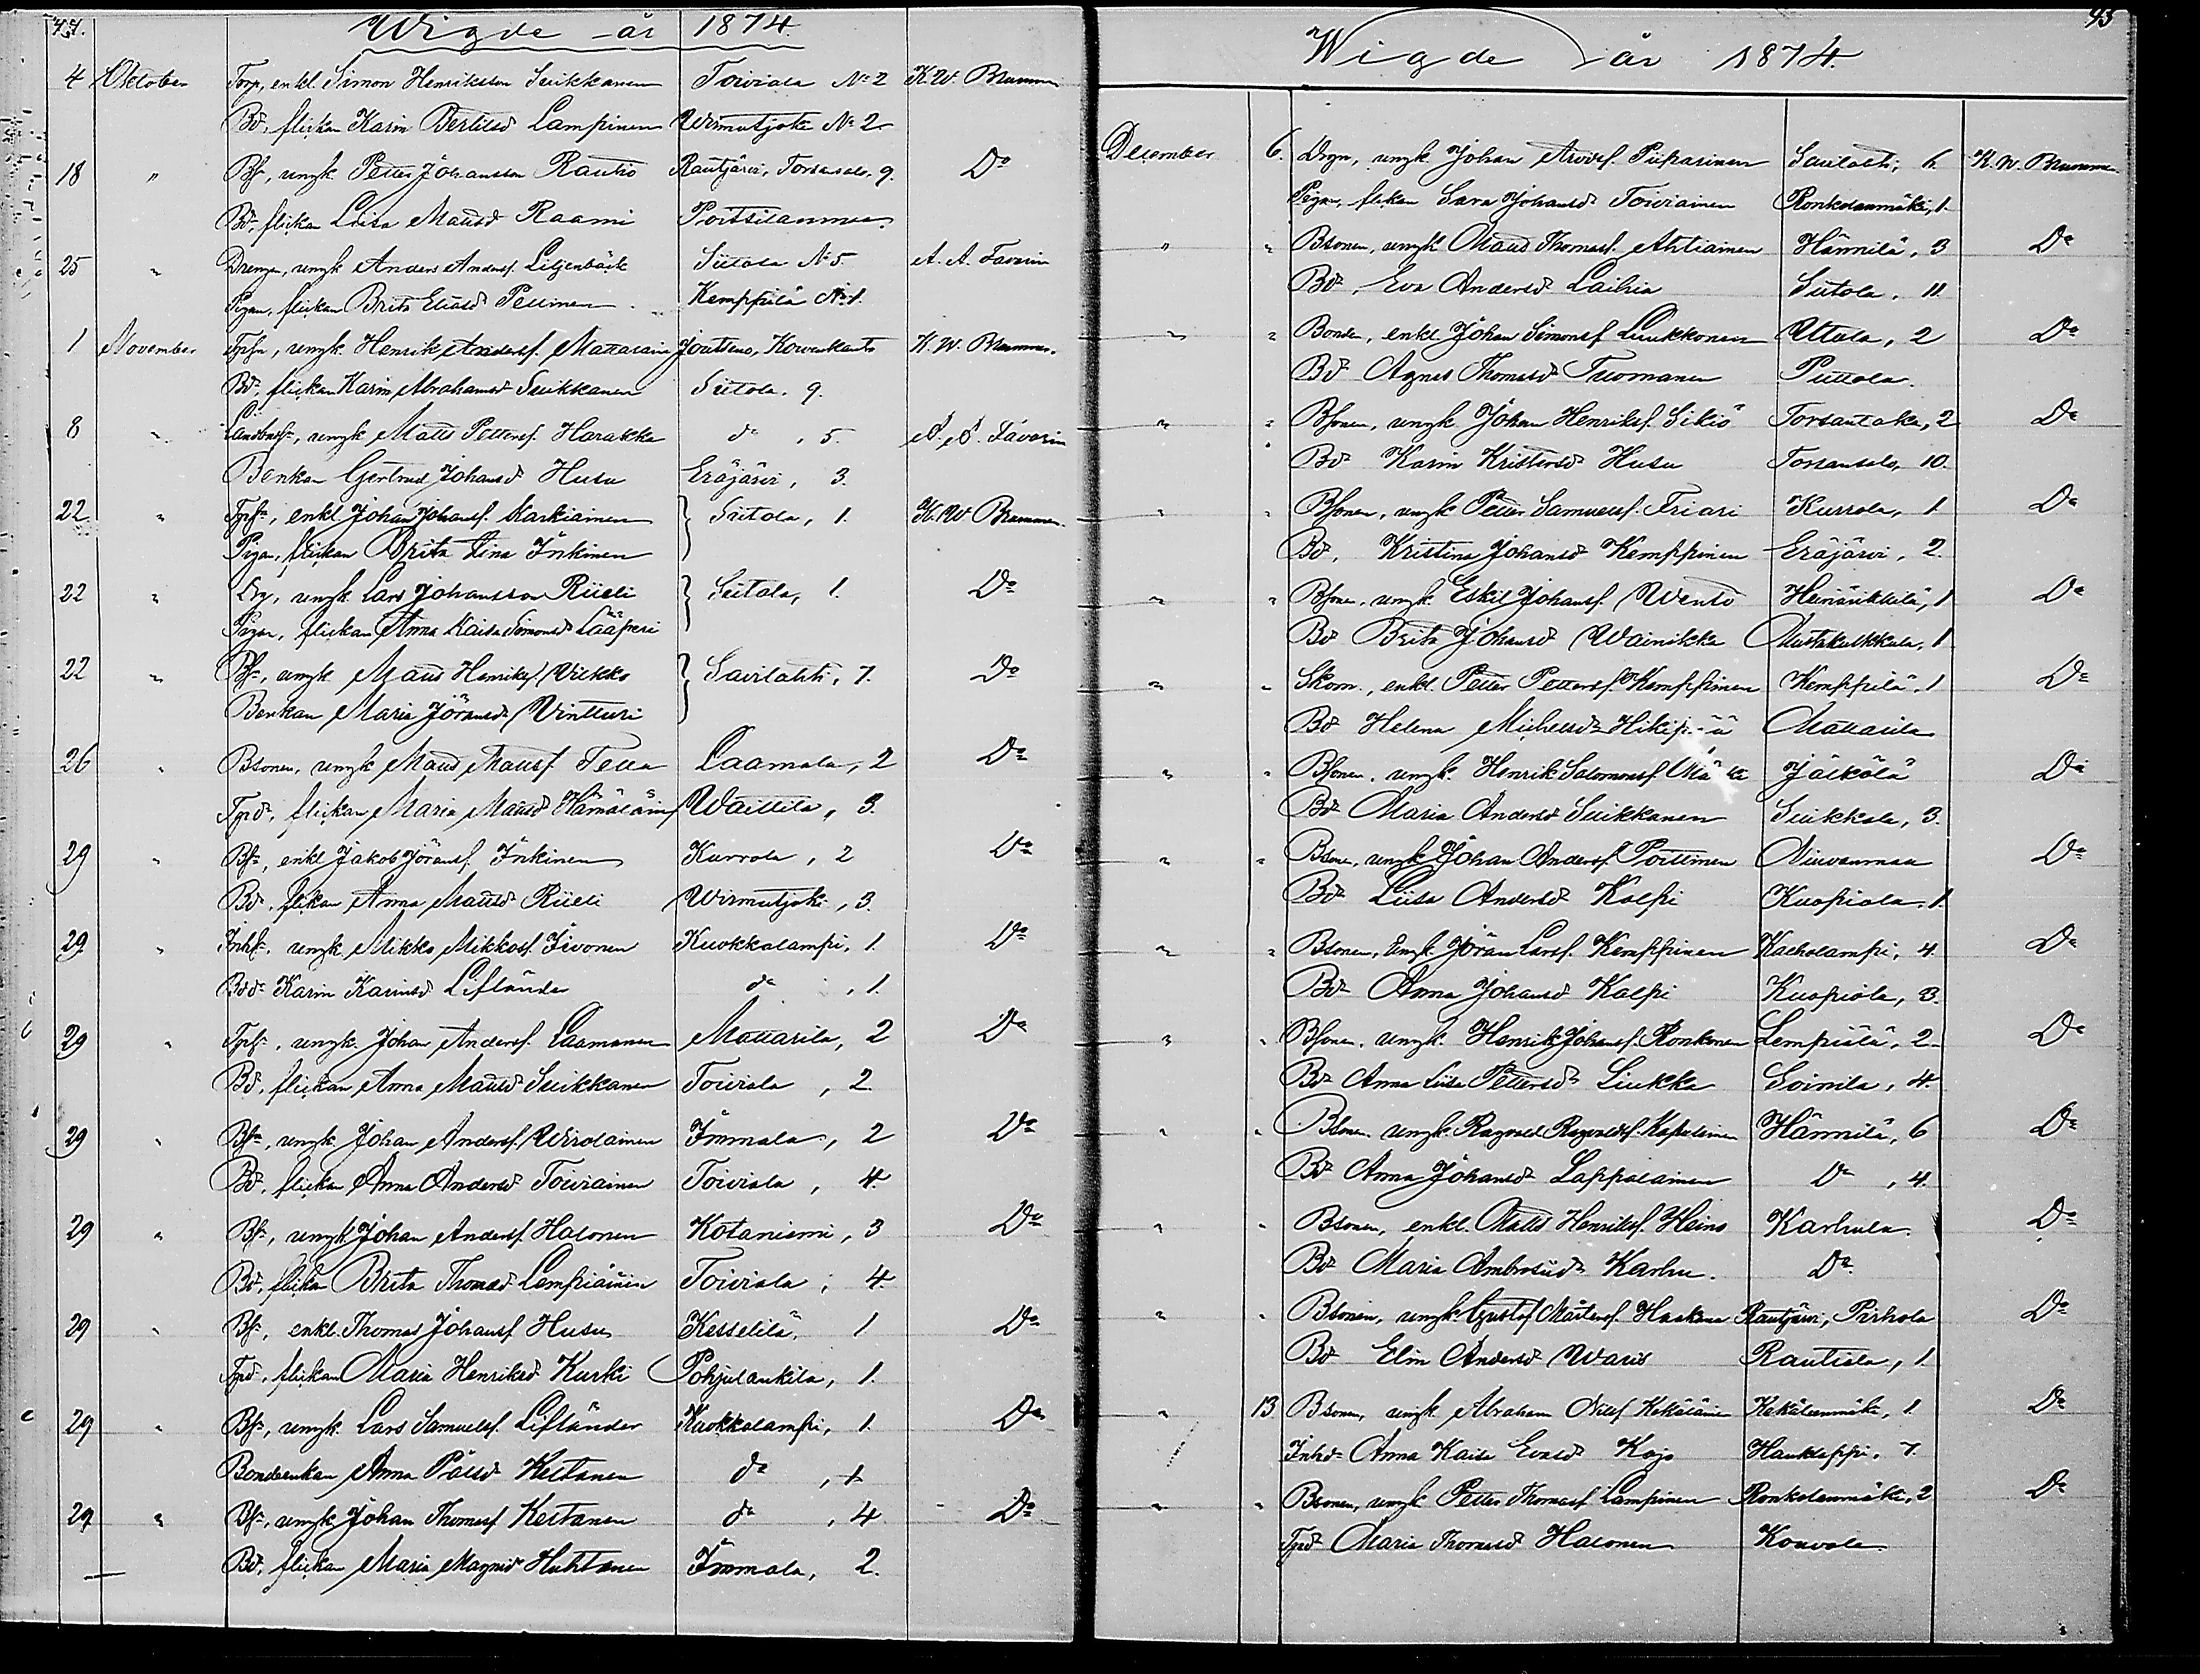 44.
Wigde år 1874.
4 Oktober Torp, enkl. Simon Henriksson Suikkanen Toiviala No 2 K. W. Brumm
Bdr, flickan Karin Bertilsdr Lampinen Wirmutjoki No 2
18 " Bs, ungk. Petter Johansson Rautio Rautjärvi, Torsansalo, 9. Do
Bdr, flickan Lovisa Mattsdr Raami
25 " Drengen, ungk Anders Andersf. Liljenbäck Siitola No 5. A. A. Favorin
Pigan, flickan Brita Eliasdr Pellinen Kemppilä No 1.
1 November Tpsn, ungk. Henrik Andersf. Joutseno, K. W. Brummer.
Bdr, flickan Karin Abrahamsdr Suikkanen Siitola, 9.
8 " ungk Matts Pettersf. Harakka do , 5. A. A. Favorin
Benkan Gertrud Johansdr Husu Eräjärvi, 3.
22 " Tpsn, enkl Johan Johansf. Karkiainen Siitola, 1. K. W. Brummer.
Pigan, flickan Brita Lena Inkinen
22 " Drg, ungk Lars Johansson Riieli Siitola, 1. Do
Pigan, flickan Anna Kaisa Simonsdr Lääperi
22 " Bsn, ungk Matts Henriksf. Vilkko Savilahti, 7. Do
Benkan Maria Jöransdr Vintturi
26 " Bsonen, ungk Matts Mattsf. Tella Laamala, 2 Do
Tprdr, flickan Maria Mattsdr Hämäläin Waittila, 3.
29 " Bsn, enkl Jakob Jöransf. Inkinen Kurrola, 2 Do
Bdr, flickan Anna Mattsdr Riieli Wirmutjoki, 3.
29 " Inhsn, ungk Mikko Mikkosf. Iivonen Kuokkalampi, 1. Do
Bddr Karin Karinsdr Lifländer do , 1.
29 " Tpsn, ungk Johan Andersf. Laamanen Mattarila, 2 Do
Bdr, flickan Anna Mattsdr Suikkanen Toiviala, 2
29 " Bsn, ungk Johan Andersf. Wirolainen Immala, 2 Do
Bdr, flickan Anna Andersdr Toiviainen Toiviala, 4.
29 " Bsn, ungk Johan Andersf. Halonen Kotaniemi, 3 Do
Bdr, flickan Brita Thomasdr Lempiäinen Toiviala, 4.
29 " Bsn, enkl. Thomas Johansf. Husu Kesselilä, 1 Do
Tprdr, flickan Maria Henriksdr Kurki Pohjalankila, 1.
29 " Bsn, ungk. Lars Samuelsf. Lifländer Kuokkalampi, 1. Do
Bondeenkan Anna Pålsdr Keltanen do , 1
29 " Bsn, ungk Johan Thomasf. Keltanen do , 4 Do
Bdr, flickan Maria Magnusdr Huhtanen Immala, 2.
45
Wigde år 1874.
December 6. Drgn, ungk Johan Arvidsf. Piiparinen Savilahti, 6. K. W. Brummer
Pigan, flickan Sara Johansdr Toiviainen Ronkolanmäki, 1.
" " Bsonen, ungk Matts Thomasf. Ahtiainen Hännilä, 3 Do
Bdr, Eva Andersdr Laihia Siitola, 11
" " Bonden, enkl. Johan Simonsf. Luukkonen Uttula, 2 Do
Bdr Agnes Thomasdr Tuomanen Puttola.
" " Bsonen, ungk. Johan Henriksf. Sikiö Torsantaka, 2 Do
Bdr Karin Kristersdr Husu Torsansalo, 10.
" " Bsonen, ungk Petter Samuelsf. Friari Kurrola, 1 Do
Bdr, Kristina Johansdr Kemppinen Eräjärvi, 2.
" " Bsonen, ungk. Eskil Johansf. Wento 1 Do
Bdr Brita Johansdr Wainikka Mustakulkkula, 1
" " Skom., enkl. Petter Pettersf. Kemppinen Kemppilä, 1 Do
Bdr Helena Michelsdr Mattarila
" " Bsonen, ungk. Henrik Salomonsf. Jäskölä Do
Bdr Maria Andersdr Suikkanen Suikkala, 3.
" " Bsonen, ungk Johan Andersf. Pottinen Niuvanmaa Do
Bdr Liisa Andersdr Kolpi Kuopiola, 1.
" " Bsonen, ungk. Jöran Larsf. Kemppinen Kaeholampi, 4. Do
Bdr Anna Johansdr Kolpi Kuopiola, 3.
" " Bsonen, ungk. Henrik Johansf. Ronkonen Lempiälä, 2. Do
Bdr Anna Liisa Pettersdr Liukka Soinila, 4.
" " Bsonen, ungk Ragvald Ragvaldsf. Kapulainen Hännilä, 6 Do
Bdr Anna Johansdr Lappalainen Do , 4.
" " Bsonen, enkl. Matts Henriksf. Heino Karhula. Do
Bdr Maria Ambrosiidr Karhu. Do.
" " Bsonen, ungk. Gustaf Mårtensf. Haakana Rautjärvi, Pirhola Do
Bdr Elin Andersdr Waris Rautiala, 1
" 13 Bsonen, ungk. Abraham Nilsf Kekäläinen Kekäleenmäki, 1. Do
Inhdr Anna Kaisa Evasdr Kojo Haukkappi, 7.
" " Bsonen, ungk Petter Thomasf Lampinen Ronkolanmäki, 2 Do
Tprdr Maria Thomasdr Halonen Kouvola